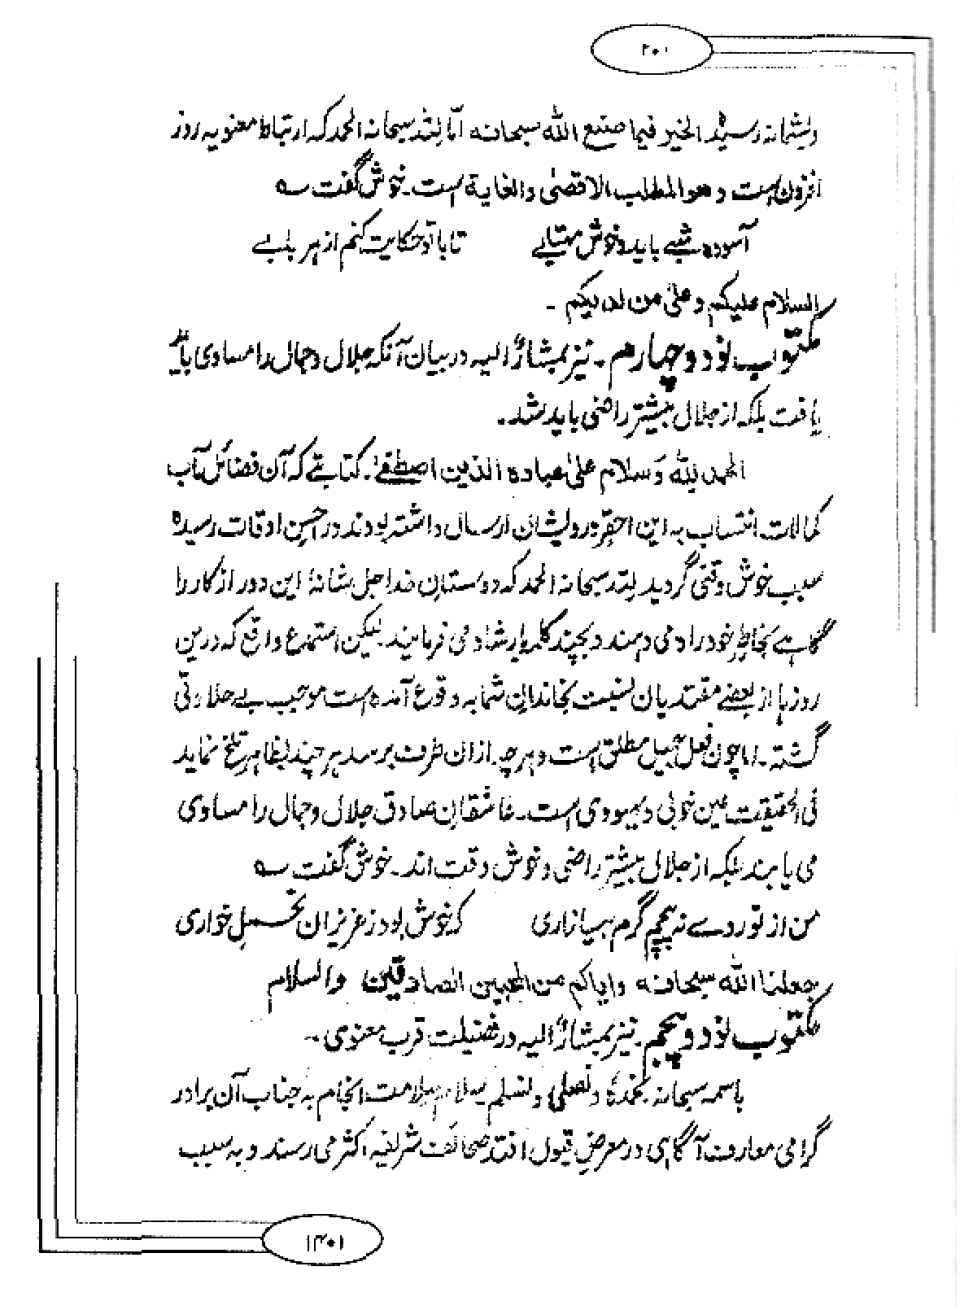 ۲۰۱
ویشمانه رسید الخیر فیما صنع الله سبحانه اما لله سبحانه الحمد که ارتباط معنویه روز
افزون است و هو المطلب الاقصیٰ والغایة است. خوش گفت سه
آسوده شبے باید و خوش مهتابے تا با تو حکایت کنم از هر بابے
السلام علیکم و علیٰ من لدیکم ۔
مکتوب نود و چهارم ۔ نیز بمشارٌ الیه در بیان آنکه جلال و جمال را مساوی باید
یافت بلکه از جلال بیشتر راضی باید شد ۔
الحمد لله وسلام علیٰ عباده الذین اصطفےٰ ۔ کتابتے که آن فضائل مآب
کمالات انتساب به این احقر درویشان ارسال داشته بودند در احسن اوقات رسیده
سبب خوش وقتی گردید لله سبحانه الحمد که دوستان خدا جل شانهٗ این دور از کار را
گاهے بخاطر خود را می دهند و بچند کلمه یار شاد می فرمایند لیکن استماع وقایع که درین
روزها از بعضے مقتدیان نسبت بخاندان شما به وقوع آمده است موجب بے حلاوتی
گشته ۔ اما چون فعل جمیل مطلق است و هر چه ازان طرف برسد هر چند بظاهر تلخ نماید
فی الحقیقت عین خوبی و بهبودی است ۔ عاشقان صادق جلال و جمال را مساوی
می یابند بلکه از جلال بیشتر راضی و خوش وقت اند ۔ خوش گفت سه
من از تو روے نه پیچم گرم بیازاری که خوش بود ز عزیزان تحمل خواری
جعلنا الله سبحانه وایاکم من المحبین الصادقین والسلام
مکتوب نود و پنجم ۔ نیز بمشارٌ الیه در فضیلت قرب معنوی ۔
باسمه سبحانه نحمدهٗ و نصلی و نسلم سلام سلامت انجام به جناب آن برادر
گرامی معارف آگاهی در معرض قبول افتد صحائف شریفه اکثر می رسند و به سبب
۱۴۰۱